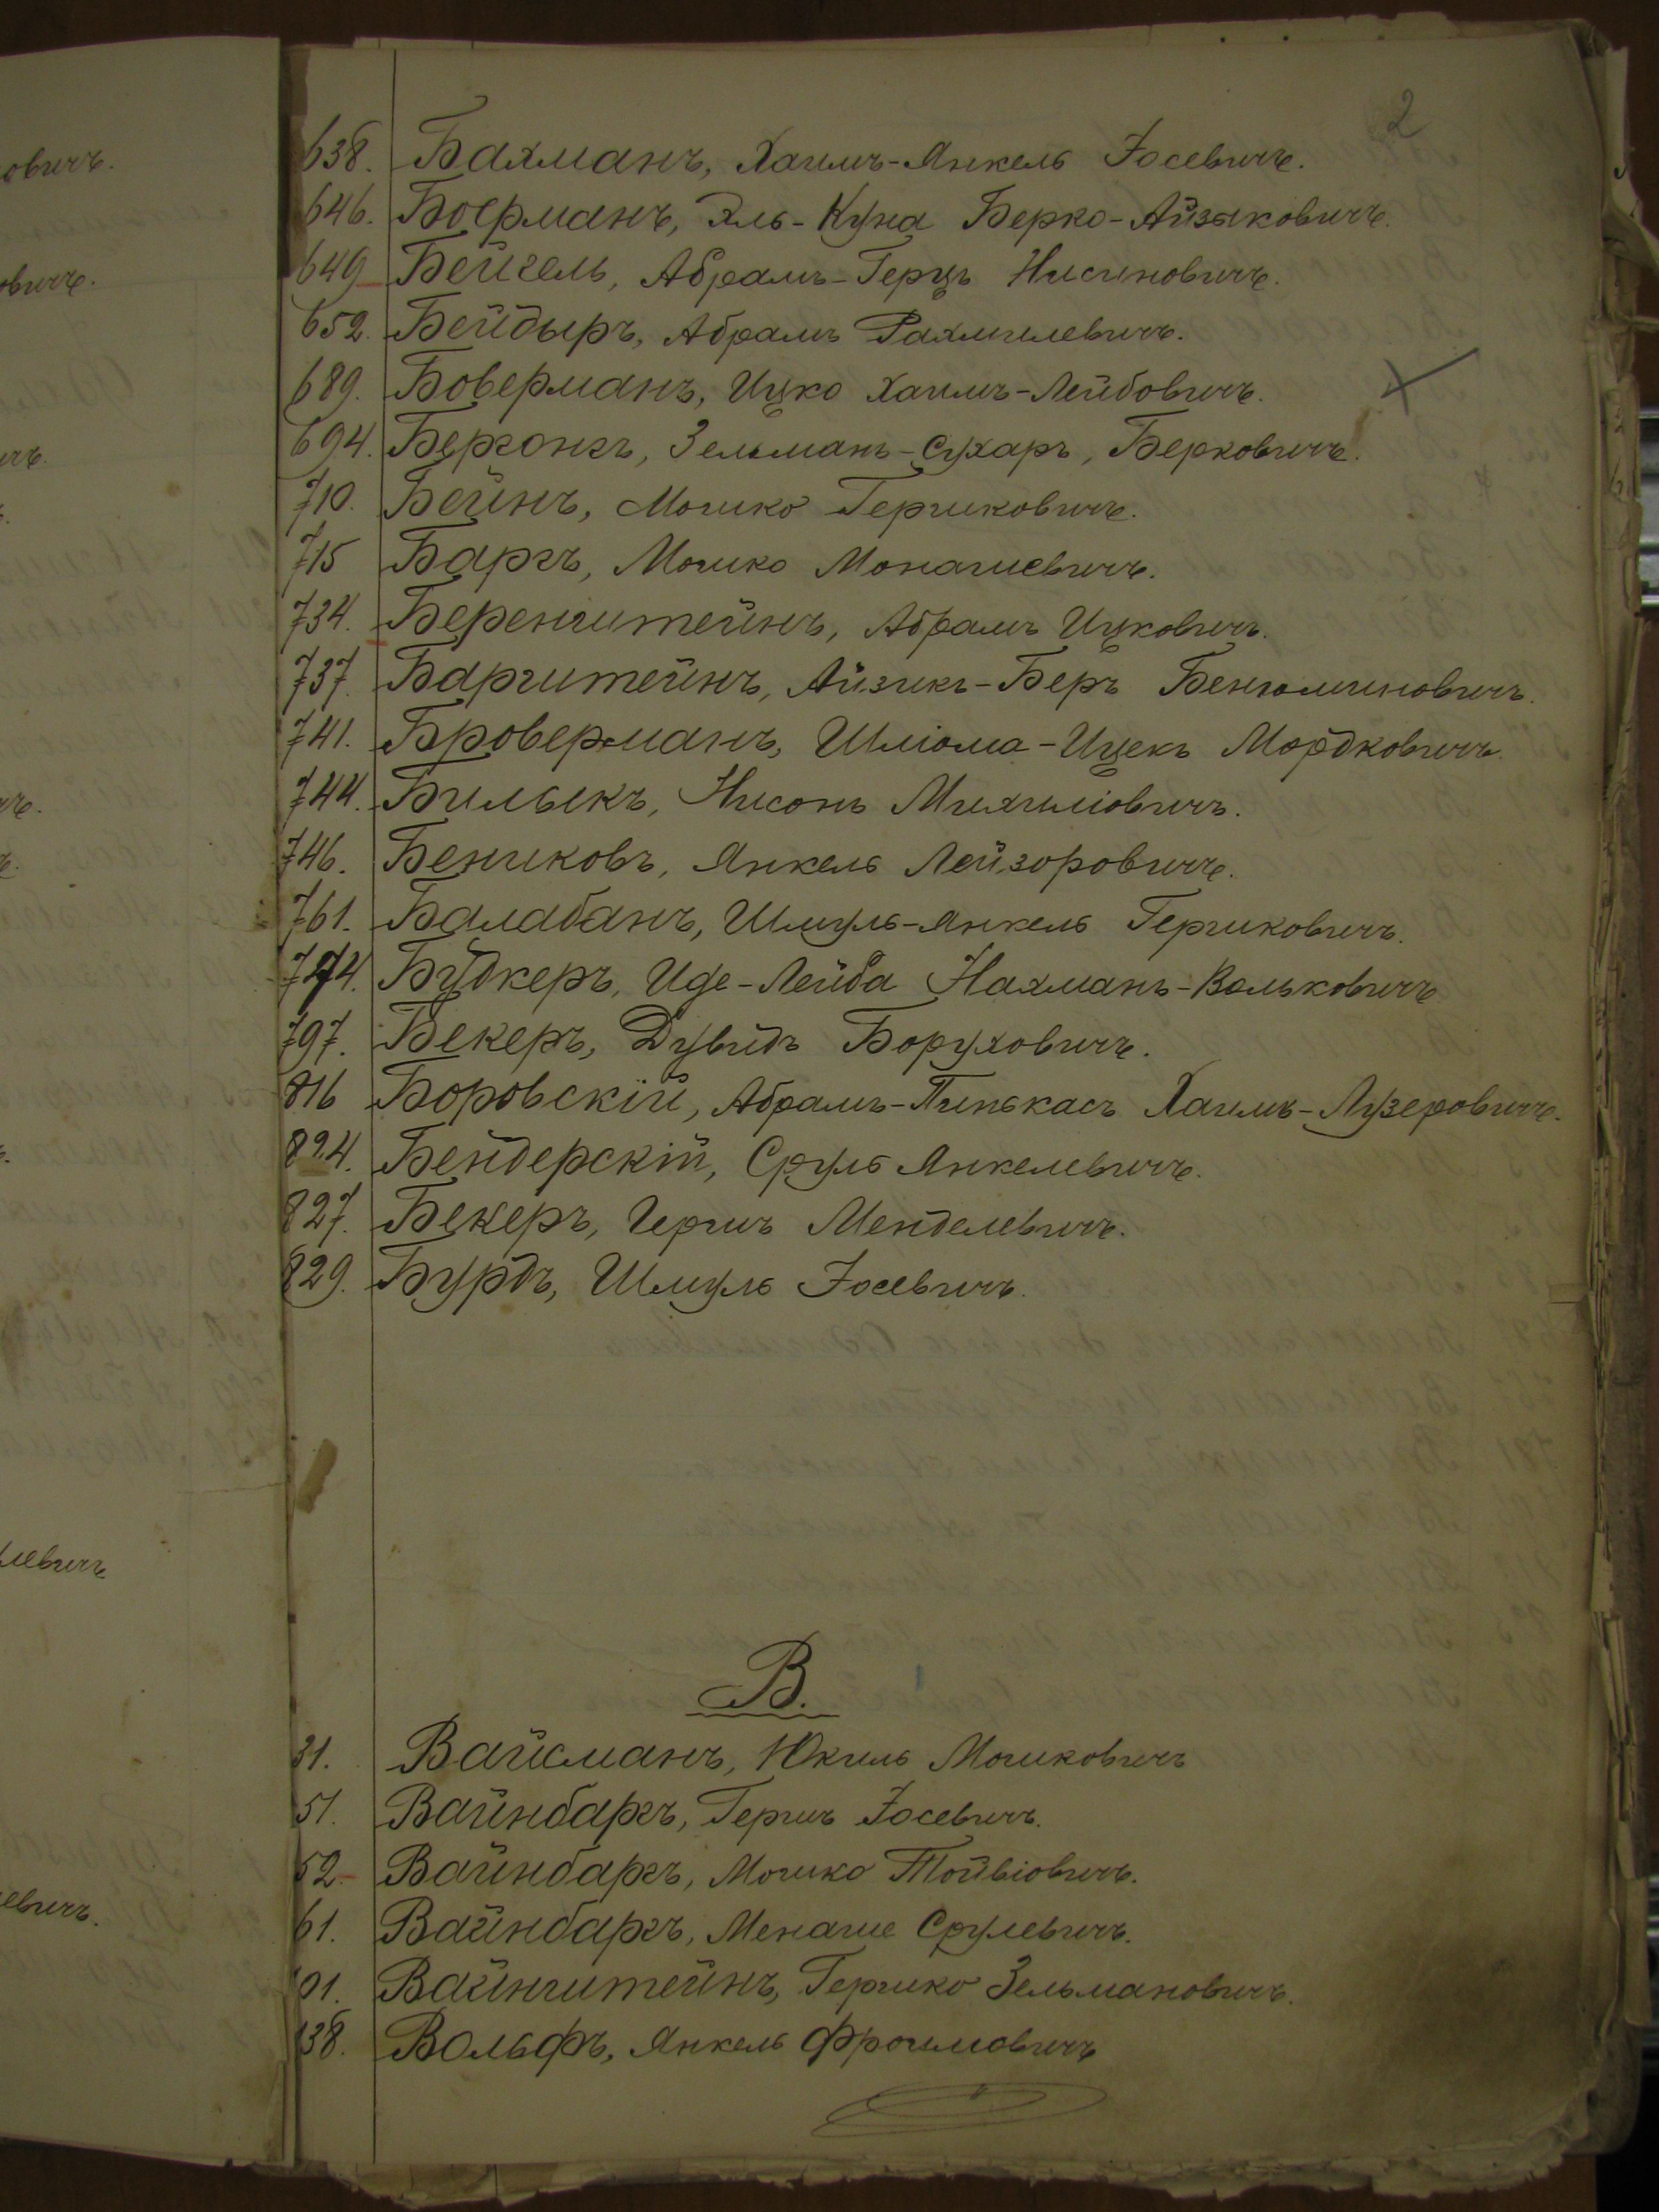 2
638. Бахманъ, Хаимъ-Янкель Іосевичъ.
646. Боерманъ, Эль-Куна Берко-Айзыковичъ.
649 Бейгель, Абрамъ-Герцъ Нисиновичъ.
652. Бейдыръ, Абрамъ Рахмилевичъ.
689. Боверманъ, Ицко Хаимъ-Лейбовичъ.
694. Бергонгъ, Зельманъ-Сухаръ, Берковичъ.
710. Бейнъ, Мошко Гершковичъ.
715 Баргъ, Мошко Монашевичъ.
734. Беренштейнъ, Абрамъ Ицковичъ.
737. Баргштейнъ, Айзикъ-Беръ Бенюминовичъ.
741. Броверманъ, Шліома-Ицекъ Мордковичъ.
744. Билыкъ, Нисонъ Михиліовичъ.
746. Бениковъ, Янкель Лейзоровичъ.
761. Балабанъ, Шмуль-Янкель Гершковичъ.
774. Будкеръ, Иде-Лейба Нахманъ-Вольковичъ
797. Бекеръ, Дувидъ Боруховичъ.
816 Боровскій, Абрамъ-Пинькасъ Хаимъ-Лузеровичъ.
824. Бендерскій, Сруль Янкелевичъ.
827. Бекеръ, Гершъ Менделевичъ.
829. Бурдъ, Шмуль Іосевичъ.
В.
31. Вайсманъ, Юкиль Мошковичъ
51. Вайнбаргъ, Гершъ Іосевичъ.
52. Вайнбаргъ, Мошко Тойвіовичъ.
61. Вайнбаргъ, Менаше Срулевичъ.
101. Вайнштейнъ, Гершко Зельмановичъ.
138. Вольфъ, Янкель Фроимовичъ